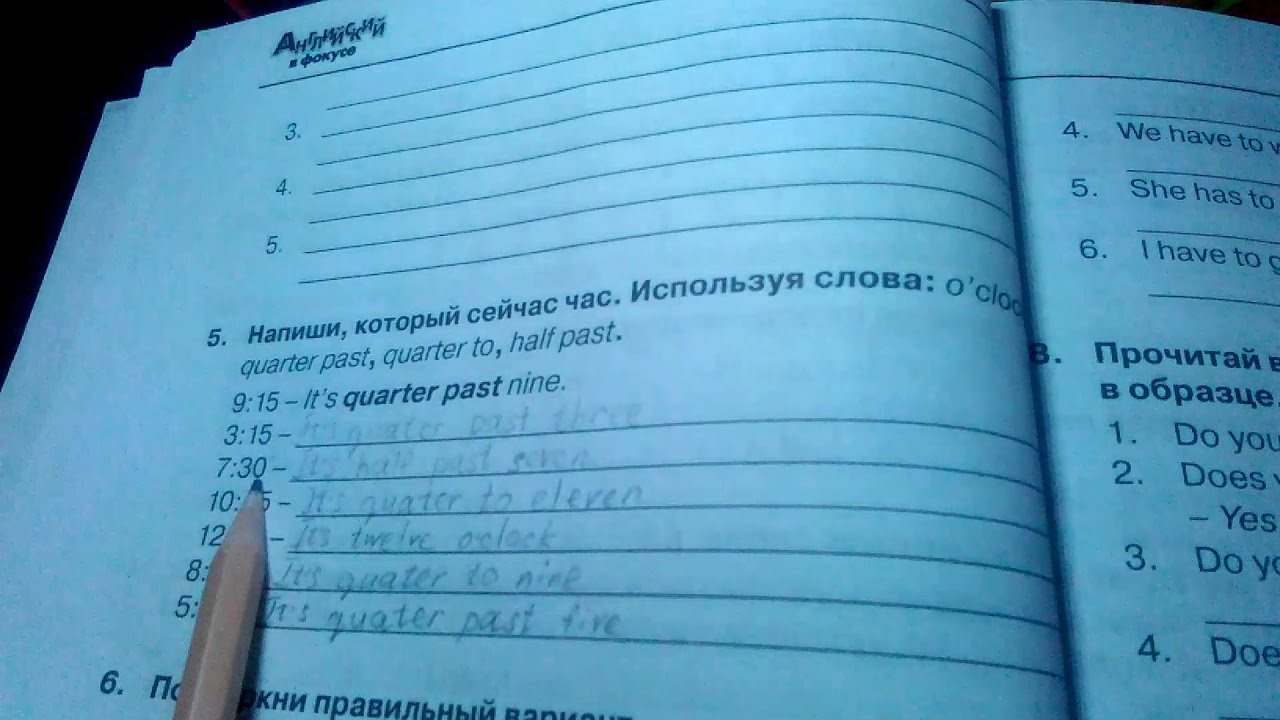 Английский
в фокусе
3.
4.
5.
5. Напиши, который сейчас час. Используя слова: o'cloc
quarter past, quarter to, half past.
9:15 – It's quarter past nine.
3:15 – It's quater past three
7:30 – It's half past seven
10: 5 – It's quater to eleven
12 – It's twelve o'clock
8: It's quater to nine
5: It's quater past five
6. По ркни правильный вариант
4. We have to w
5. She has to
6. I have to g
8. Прочитай в
в образце.
1. Do you
2. Does
– Yes
3. Do yo
4. Doe